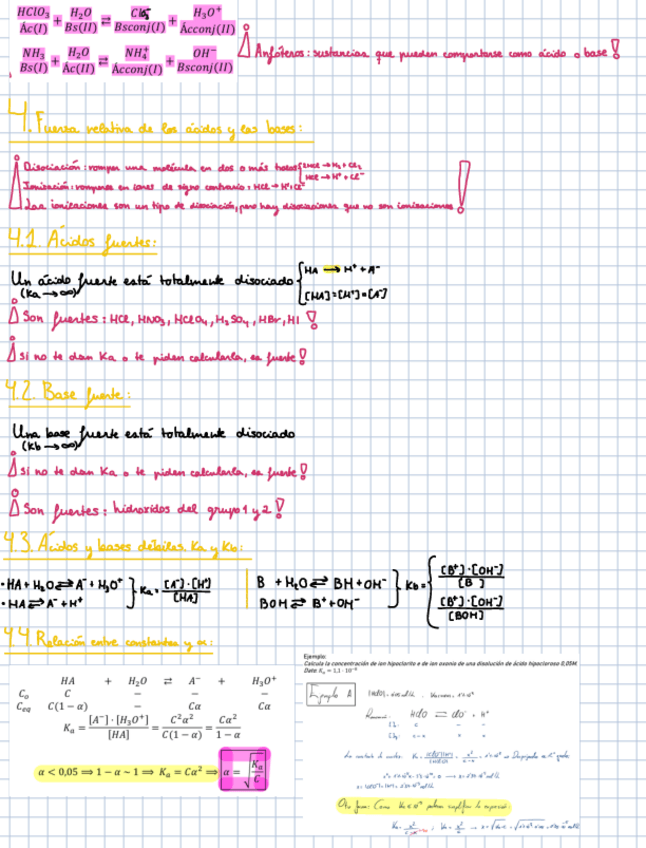 HClO₃ + H₂O ⇄ + H₃O⁺
Ác(I) Bs(II) Bsconj(I) Ácconj(II)
NH₃ + H₂O ⇄ NH₄⁺ + OH⁻
Bs(I) Ác(II) Ácconj(I) Bsconj(II)
¡Anfóteros: sustancias que pueden comportarse como ácido o base!
4. Fuerza relativa de los ácidos y las bases:
¡Disociación: romper una molécula en dos o más trozos { 2HCl → H₂ + Cl₂
HCl → H⁺ + Cl⁻
Ionización: romperse en iones de signo contrario: HCl → H⁺ + Cl⁻
Las ionizaciones son un tipo de disociación, pero hay disociaciones que no son ionizaciones!
4.1. Ácidos fuertes:
Un ácido fuerte está totalmente disociado { HA → H⁺ + A⁻
(Ka → ∞) [HA] = [H⁺] = [A⁻]
¡Son fuertes: HCl, HNO₃, HClO₄, H₂SO₄, HBr, HI!
¡Si no te dan Ka o te piden calcularla, es fuerte!
4.2. Base fuerte:
Una base fuerte está totalmente disociado
(Kb → ∞)
¡Si no te dan Ka o te piden calcularla, es fuerte!
¡Son fuertes: hidróxidos del grupo 1 y 2!
4.3. Ácidos y bases débiles. Ka y Kb:
· HA + H₂O ⇄ A⁻ + H₃O⁺ } Ka = [A⁻]·[H⁺] / [HA]
· HA ⇄ A⁻ + H⁺
B + H₂O ⇄ BH + OH⁻ } Kb = { [B⁺]·[OH⁻] / [B]
BOH ⇄ B⁺ + OH⁻ [B⁺]·[OH⁻] / [BOH]
4.4. Relación entre constantes y α:
HA + H₂O ⇄ A⁻ + H₃O⁺
C₀ C − − −
Ceq C(1 − α) − Cα Cα
Kₐ = [A⁻]·[H₃O⁺] / [HA] = C²α² / C(1 − α) = Cα² / 1 − α
α < 0,05 ⟹ 1 − α ~ 1 ⟹ Kₐ = Cα² ⟹ α = √(Kₐ / C)
Ejemplo:
Calcula la concentración de ion hipoclorito e de ion oxonio de una disolución de ácido hipocloroso 0,05M
Ejemplo A
Otra forma: Como simplificar la expresión: